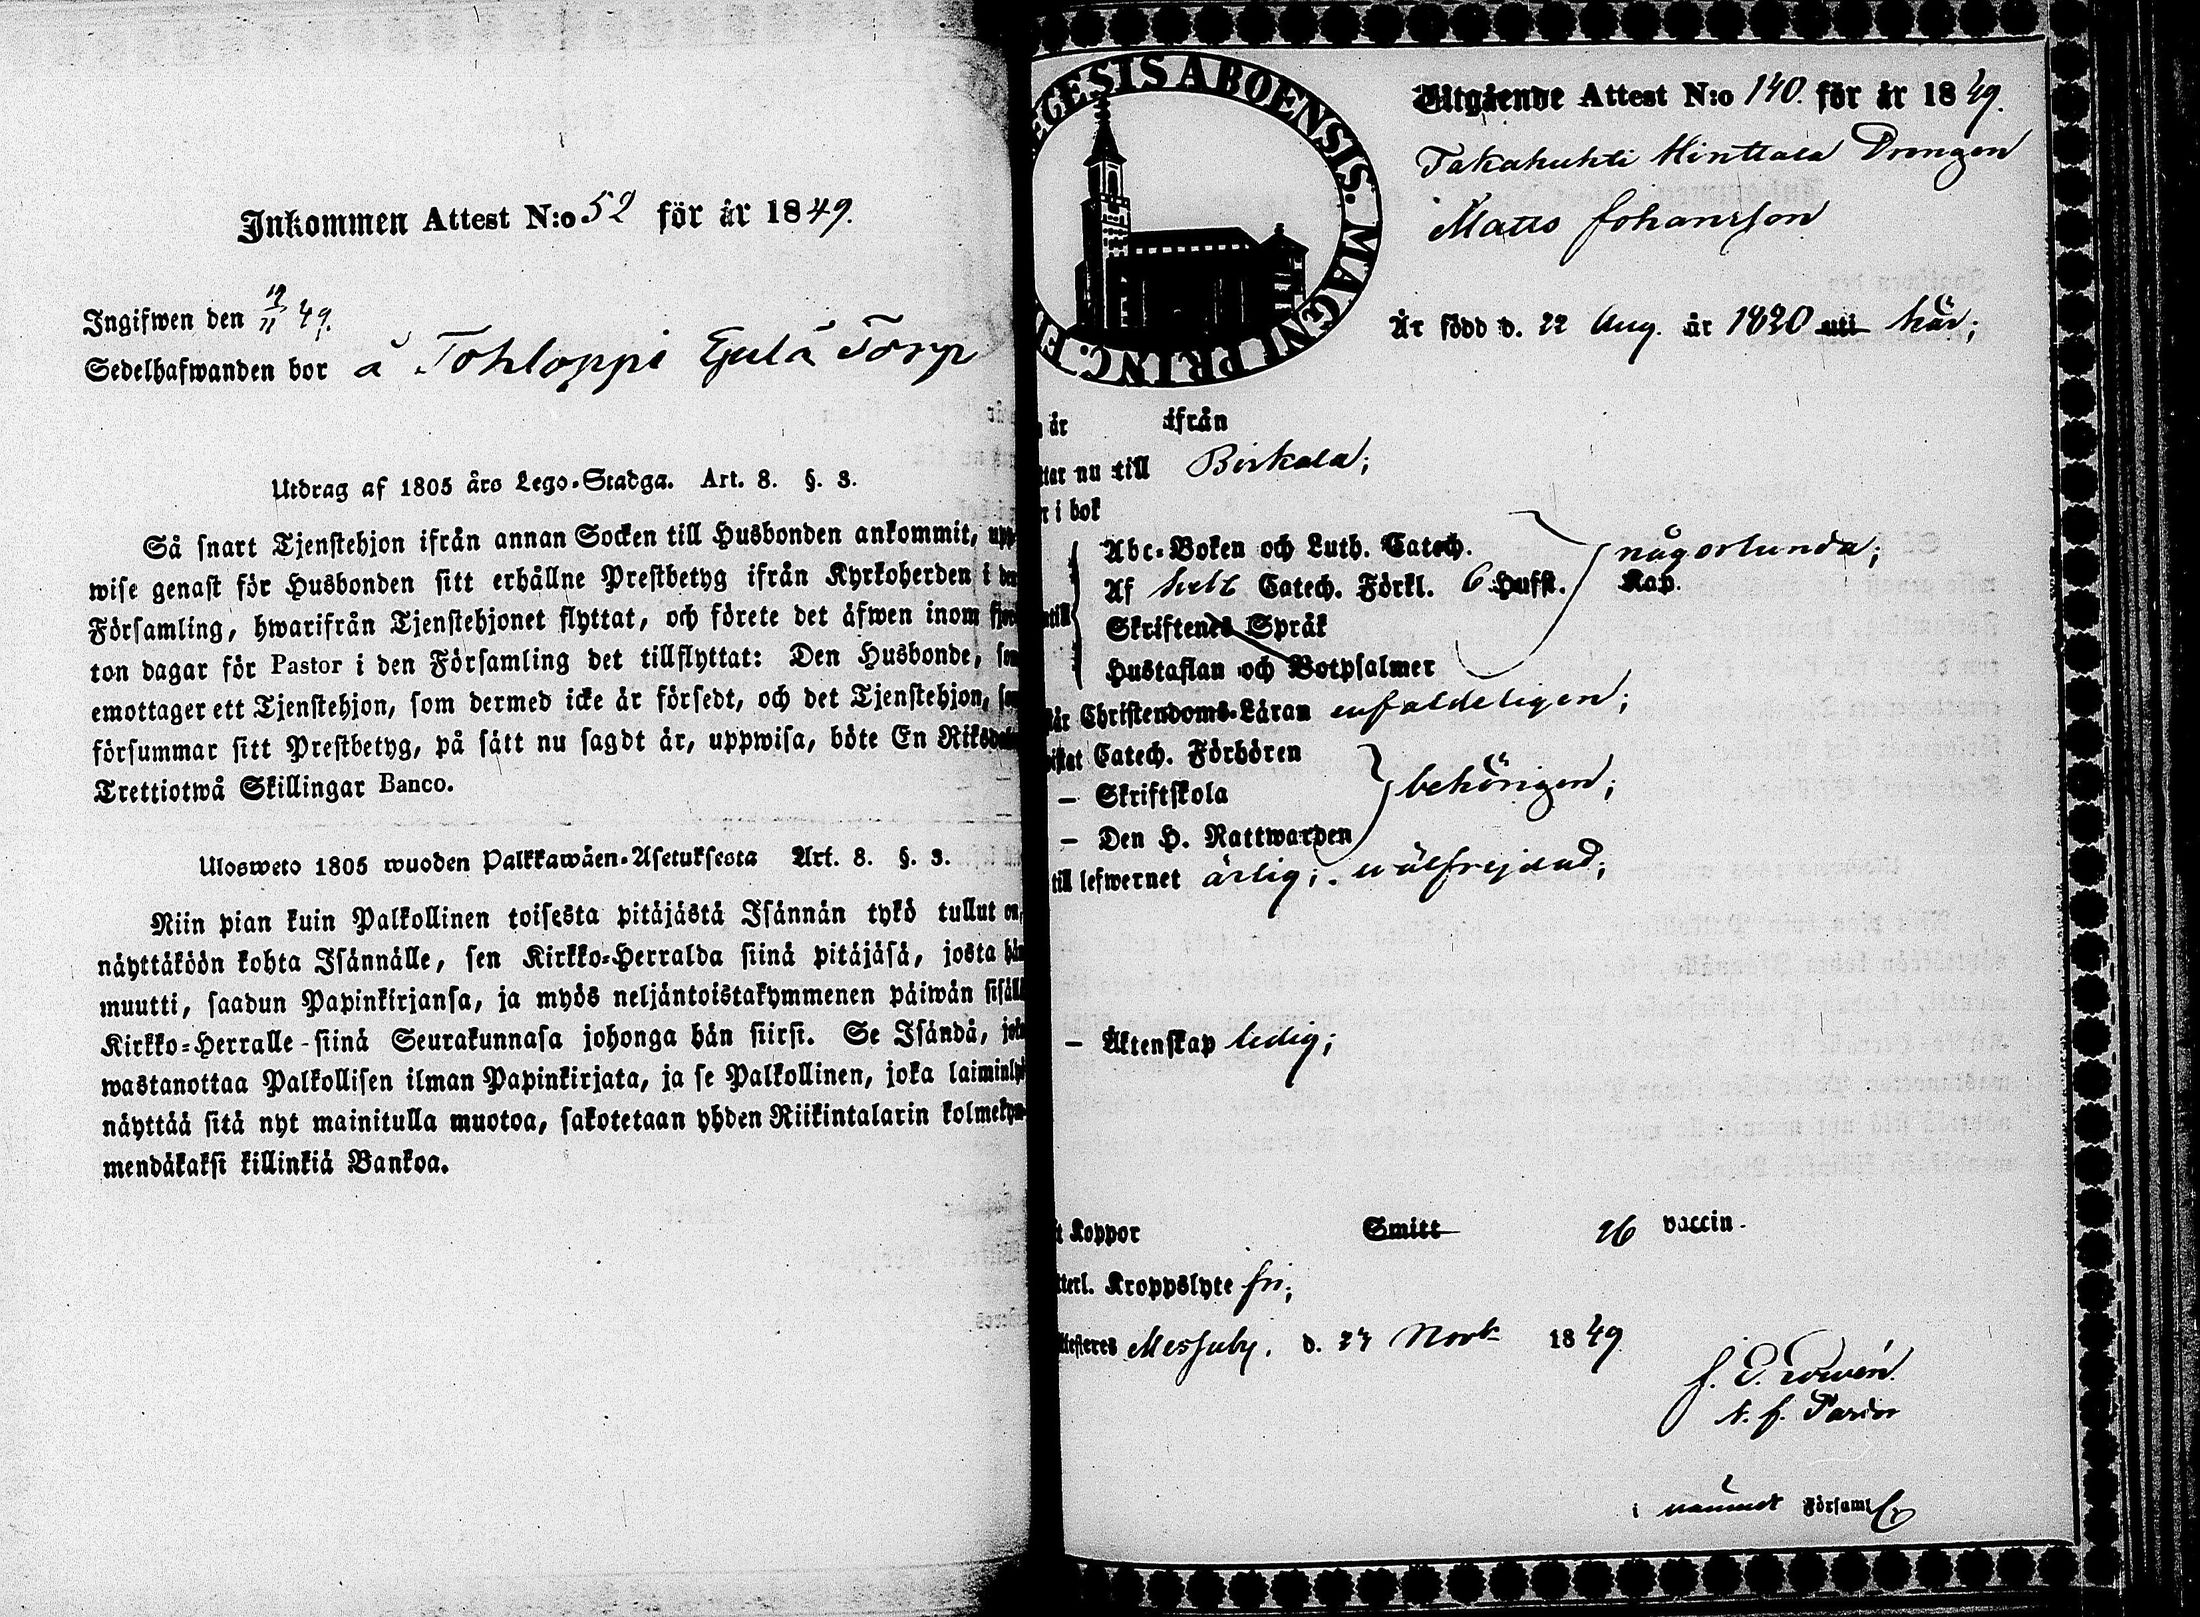 Inkommen Attest N:o 52 för år 1849.
Ingifwen den 19/11 49.
Sedelhafwanden bor å Tohloppi Eskelä Torp
Utdrag af 1805 års Lego-Stadga. Art. 8. §. 3.
Så snart Tjenstehjon ifrån annan Socken till Husbonden ankommit, upp-
wise genast för Husbonden sitt erhållne Prestbetyg ifrån Kyrkoherden i den
Församling, hwarifrån Tjenstehjonet flyttat, och förete det äfwen inom fjor-
ton dagar för Pastor i den Församling det tillflyttat: Den Husbonde, som
emottager ett Tjenstehjon, som dermed icke är försedt, och det Tjenstehjon, som
försummar sitt Prestbetyg, på sätt nu sagdt är, uppwisa, böte En Riksdaler
Trettiotwå Skillingar Banco.
Ulosweto 1805 wuoden Palkkawäen-Asetuksesta Art. 8. §. 3.
Niin pian kuin Palkollinen toisesta pitäjästä Isännän tykö tullut on,
näyttäköön kohta Isännälle, sen Kirkko-Herralda siinä pitäjäsä, josta hän
muutti, saadun Papinkirjansa, ja myös neljäntoistakymmenen päiwän sisällä
Kirkko-Herralle siinä Seurakunnasa johonga hän siirsi. Se Isändä, joka
wastanottaa Palkollisen ilman Papinkirjata, ja se Palkollinen, joka laiminlyö
näyttää sitä nyt mainitulla muotoa, sakotetaan yhden Riikintalarin kolmekym-
mendäkaksi killinkiä Bankoa.
ECESIS ABOENSIS. MAGNI PRINC. F
Utgående Attest N:o 140. för år 1849.
Takahuhti Hinttala Drengen
Matts Johansson
Är född d. 22 Aug. år 1820 uti här;
är ifrån
ttar nu till Birkala;
r i bok
Abc-Boken och Luth. Catech. någorlunda;
Af hela Catech. Förkl. 6 Hufst. Kap.
Skriftenes Språk
Hustaflan och Botpsalmer
tår Christendoms-Läran enfaldeligen;
istat Catech. Förhören
– Skriftskola behörigen;
– Den H. Nattwarden
till lefwernet ärlig; wälfrejdad;
– Äktenskap ledig;
t Koppor Smitt 26 vaccin.
tterl. Kroppslyte fri;
ttesteres Messuby, d. 27 Novb 1849
i nämnd Församl